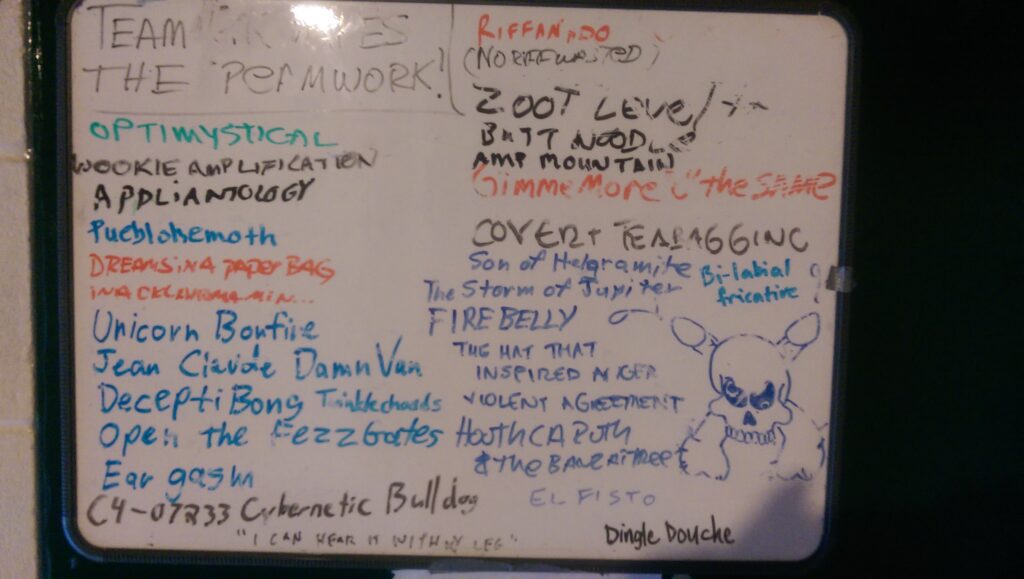 TEAM
THE
OPTIMYSTICAL
WOOKIE AMPLIFICATION
APPLIANTOLOGY
Pueblohemoth
DREAMS IN A PAPER BAG
Unicorn Bonfire
Jean Claude Damn Van
Decepti Bong
Open the Fezz Gates
Ear gasm
C4-07233 Cybernetic Bulldog
"I CAN HEAR IT WITH MY LEG"
RIFFANIDO
ZOOT LEVEL
BUTT NOODLE
AMP MOUNTAIN
Gimme More "U" the SAME
COVERT TEABAGGING
Son of Helgramite
Bi-labial
fricative
The Storm of Jupiter
FIRE BELLY
THE HAT THAT
INSPIRED ANGER
VIOLENT AGREEMENT
& THE BANZAI
EL FISTO
Dingle Douche